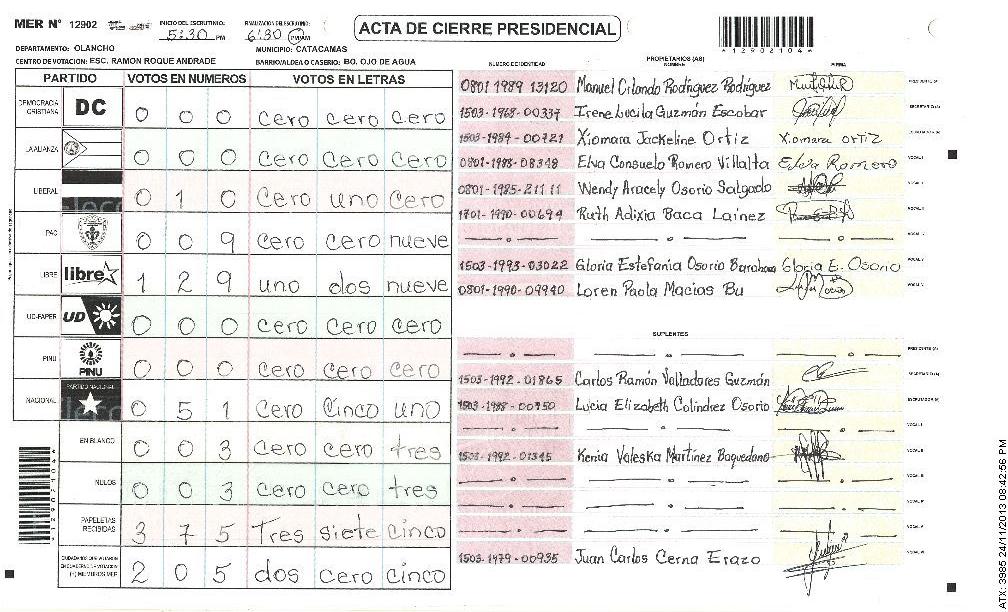 MER N° 12902 INICIO DEL ESCRUTINIO: 5:30 PM FINALIZACION DEL ESCRUTINIO: 6:30 PM/AM
ACTA DE CIERRE PRESIDENCIAL
*12902104*
DEPARTAMENTO: OLANCHO MUNICIPIO: CATACAMAS
CENTRO DE VOTACION: ESC. RAMON ROQUE ANDRADE BARRIO/ALDEA O CASERIO: BO. OJO DE AGUA
PARTIDO VOTOS EN NUMEROS VOTOS EN LETRAS
DEMOCRACIA CRISTIANA DC 0 0 0 cero cero cero
LA ALIANZA 0 0 0 cero cero cero
LIBERAL 0 1 0 cero uno cero
PAC 0 0 9 cero cero nueve
LIBRE libre 1 2 9 uno dos nueve
UD-FAPER UD 0 0 0 cero cero cero
PINU PINU 0 0 0 cero cero cero
NACIONAL PARTIDO NACIONAL 0 5 1 cero cinco uno
EN BLANCO 0 0 3 cero cero tres
NULOS 0 0 3 cero cero tres
PAPELETAS RECIBIDAS 3 7 5 Tres siete cinco
CIUDADANOS QUE VOTARON EN CUADERNO DE VOTACION (+) MIEMBROS MER 2 0 5 dos cero cinco
PROPIETARIOS (AS)
NUMERO DE IDENTIDAD NOMBRE FIRMA
0801 1989 13120 Manuel Orlando Rodríguez Rodríguez PRESIDENTE (A)
1503-1968-00337 Irene Lucila Guzmán Escobar SECRETARIO (A)
1503-1989-00721 Xiomara Jackeline Ortiz Xiomara ortiz
0801-1988-08348 Elva Consuelo Romero Villalta Elva Romero VOCAL I
0801-1985-21111 Wendy Aracely Osorio Salgado
1701-1990-00694 Ruth Adixia Baca Lainez
1503-1993-03022 Gloria Estefania Osorio Barahona Gloria E. Osorio
0801-1990-09940 Loren Paola Macias Bu
SUPLENTES
PRESIDENTE (A)
1503-1992-01865 Carlos Ramón Valladares Guzmán SECRETARIO (A)
1503-1988-00750 Lucia Elizabeth Colindrez Osorio ESCRUTADOR (A)
1503-1992-01345 Kenia Valeska Martínez Baquedano
1503-1979-00935 Juan Carlos Cerna Erazo
*12902104*
ATX: 3985 24/11/2013 08:42:56 PM